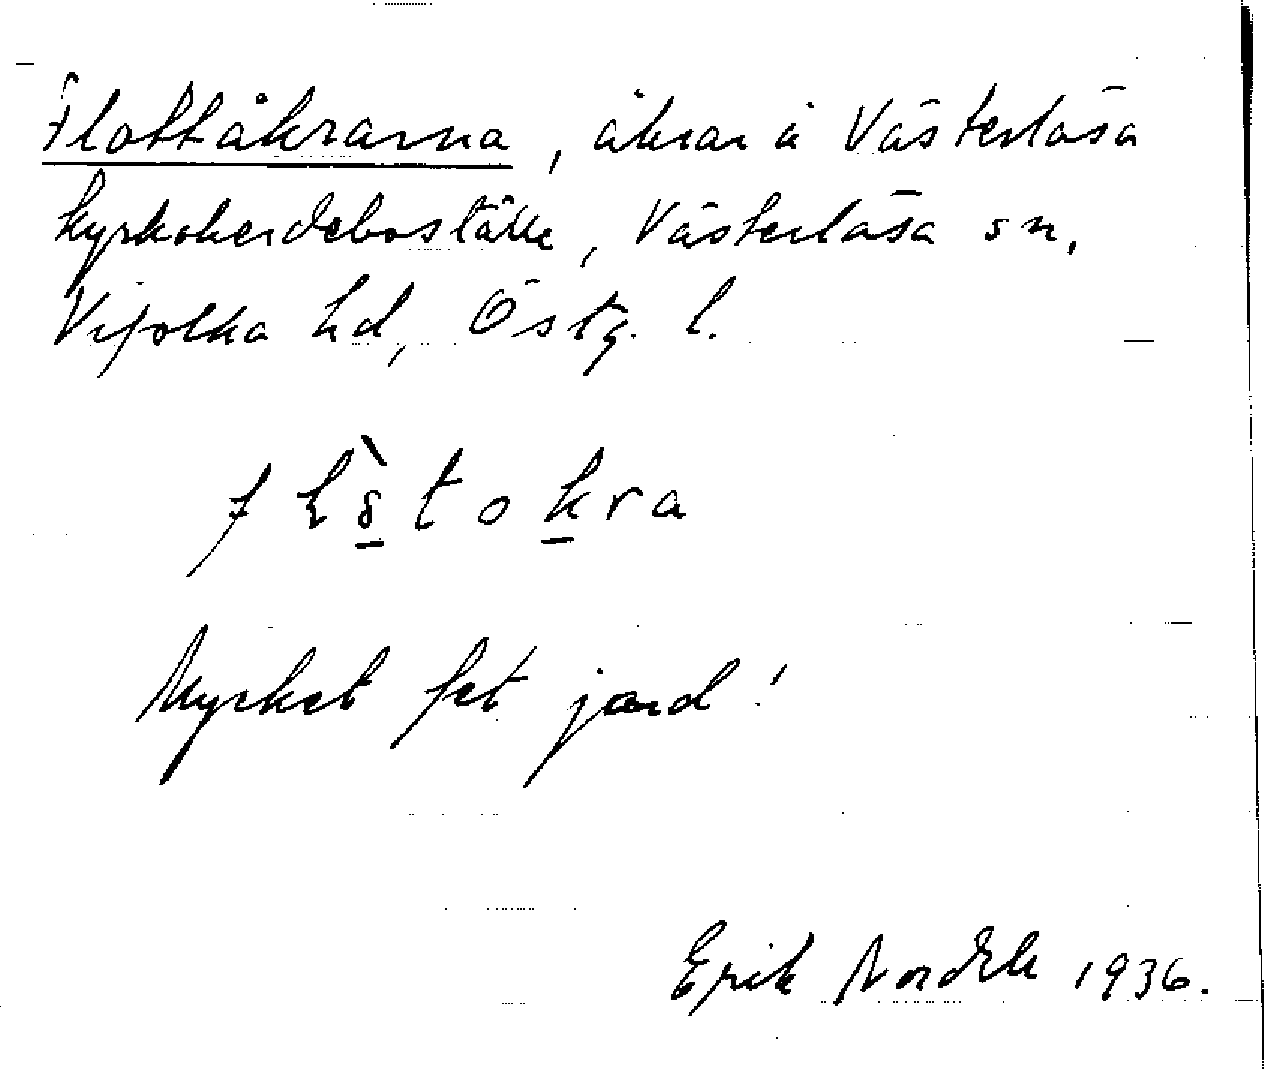 Flottåkrarna, åkrar å Västerlösa
kyrkoherdeboställe, Västerlösa sn,
Vifolka hd, Östg. l.
flòtokra
Mycket fet jord!
Erik Nordell 1936.